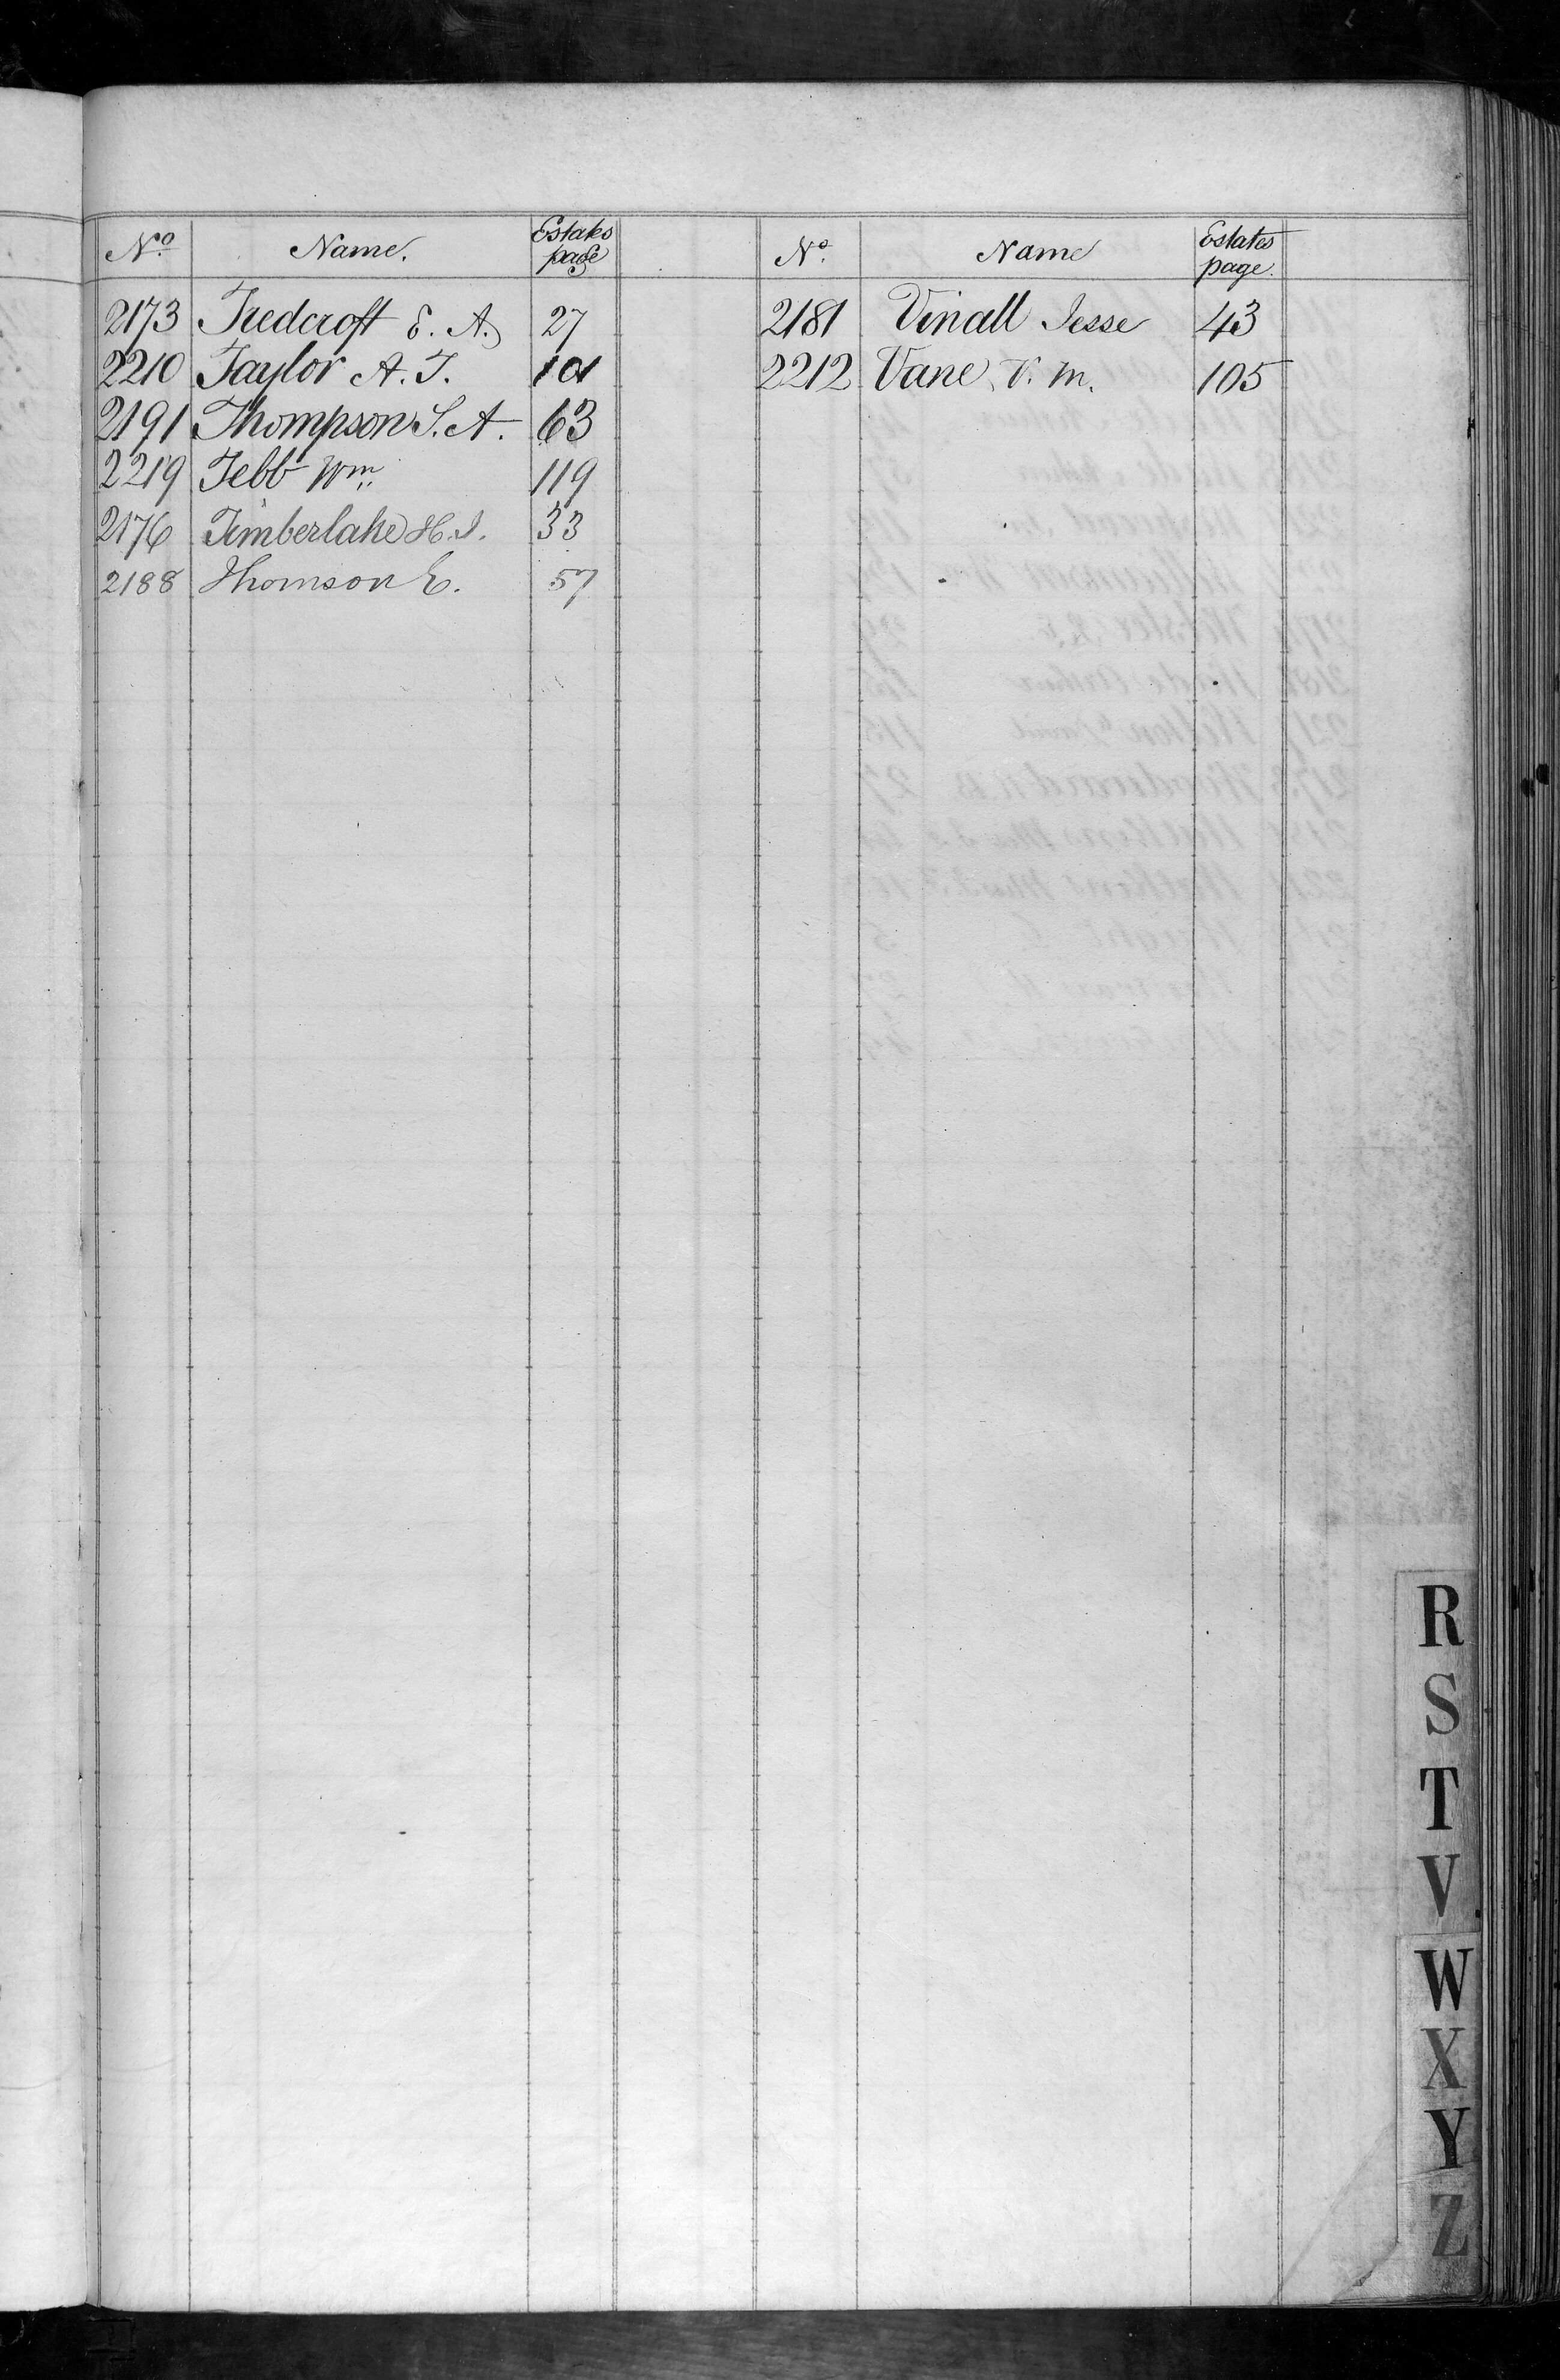 No. Name. Estates page
2173 Tredcroft E. A. 27
2210 Taylor A. T. 101
2191 Thompson S. A. 63
2219 Tebb Wm. 119
2176 Timberlake H. J. 33
2188 Thomson E. 57
No. Name Estates page.
2181 Vinall Jesse 43
2212 Vane V. M. 105
R
S
T
V
W
X
Y
Z